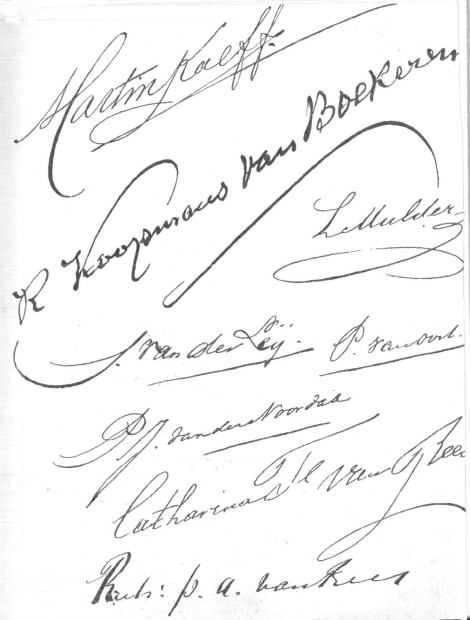 Martin Kalff.
R Koopmans van Boekeren
L Mulder
S. van der Leij. P. van Oort.
P. J. van der Noordaa
Catharina van Rees
p. a. van Rees